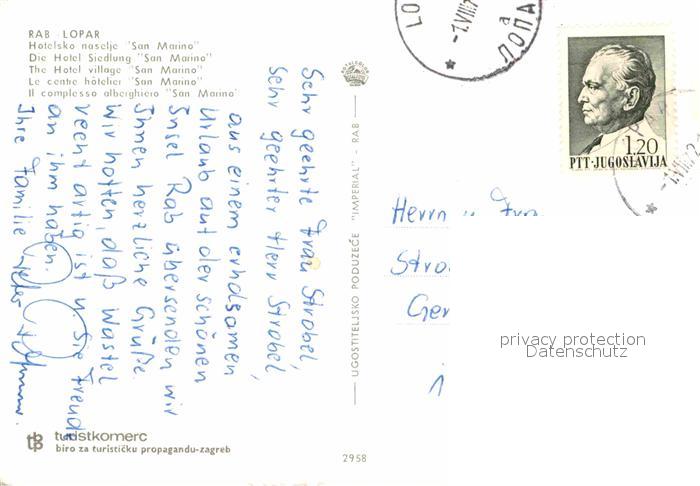 RAB - LOPAR
Hotelsko naselje "San Marino"
Die Hotel Siedlung "San Marino"
The Hotel village "San Marino"
Le centre hôtelier "San Marino"
Il complesso alberghiero "San Marino"
Sehr geehrte Frau Strobel,
sehr geehrter Herr Strobel,
aus einem erholsamen
Urlaub auf der schönen
Insel Rab übersenden wir
Ihnen herzliche Grüße.
Wir hoffen, daß Wastel
recht artig ist u. Sie Freude
an ihm haben.
Ihre Familie
UGOSTITELJSKO PODUZEĆE "IMPERIAL" - RAB
LO
-7.VIII.7
ЛОПА
1.20
PTT·JUGOSLAVIJA
Herrn u. Frau
Stro
Ger
privacy protection
Datenschutz
tb turistkomerc
biro za turističku propagandu-zagreb
2958